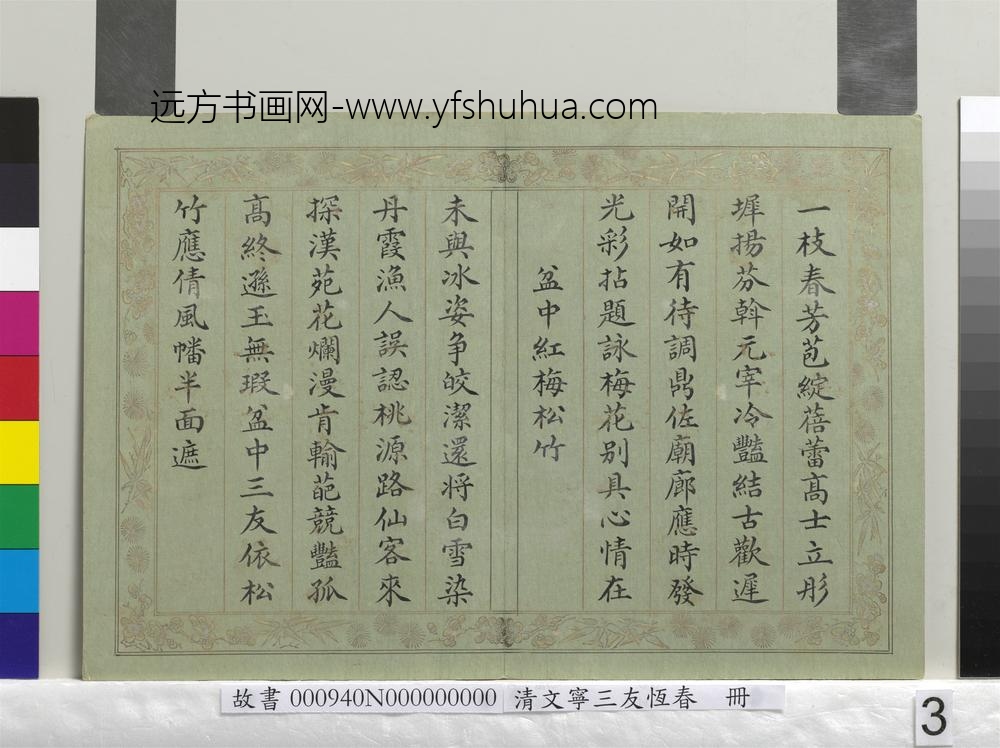 远方书画网-www.yfshuhua.com
一枝春芳苞綻蓓蕾高士立彤
墀揚芬斡元宰冷豔結古歡遲
開如有待調鼎佐廟廊應時發
光彩拈題詠梅花別具心情在
盆中紅梅松竹
未與冰姿争皎潔還将白雪染
丹霞漁人誤認桃源路仙客來
探漢苑花爛漫肯輸葩競豔孤
高終遜玉無瑕盆中三友依松
竹應倩風幡半面遮
故書 000940N000000000 清文寧三友恆春 冊
3